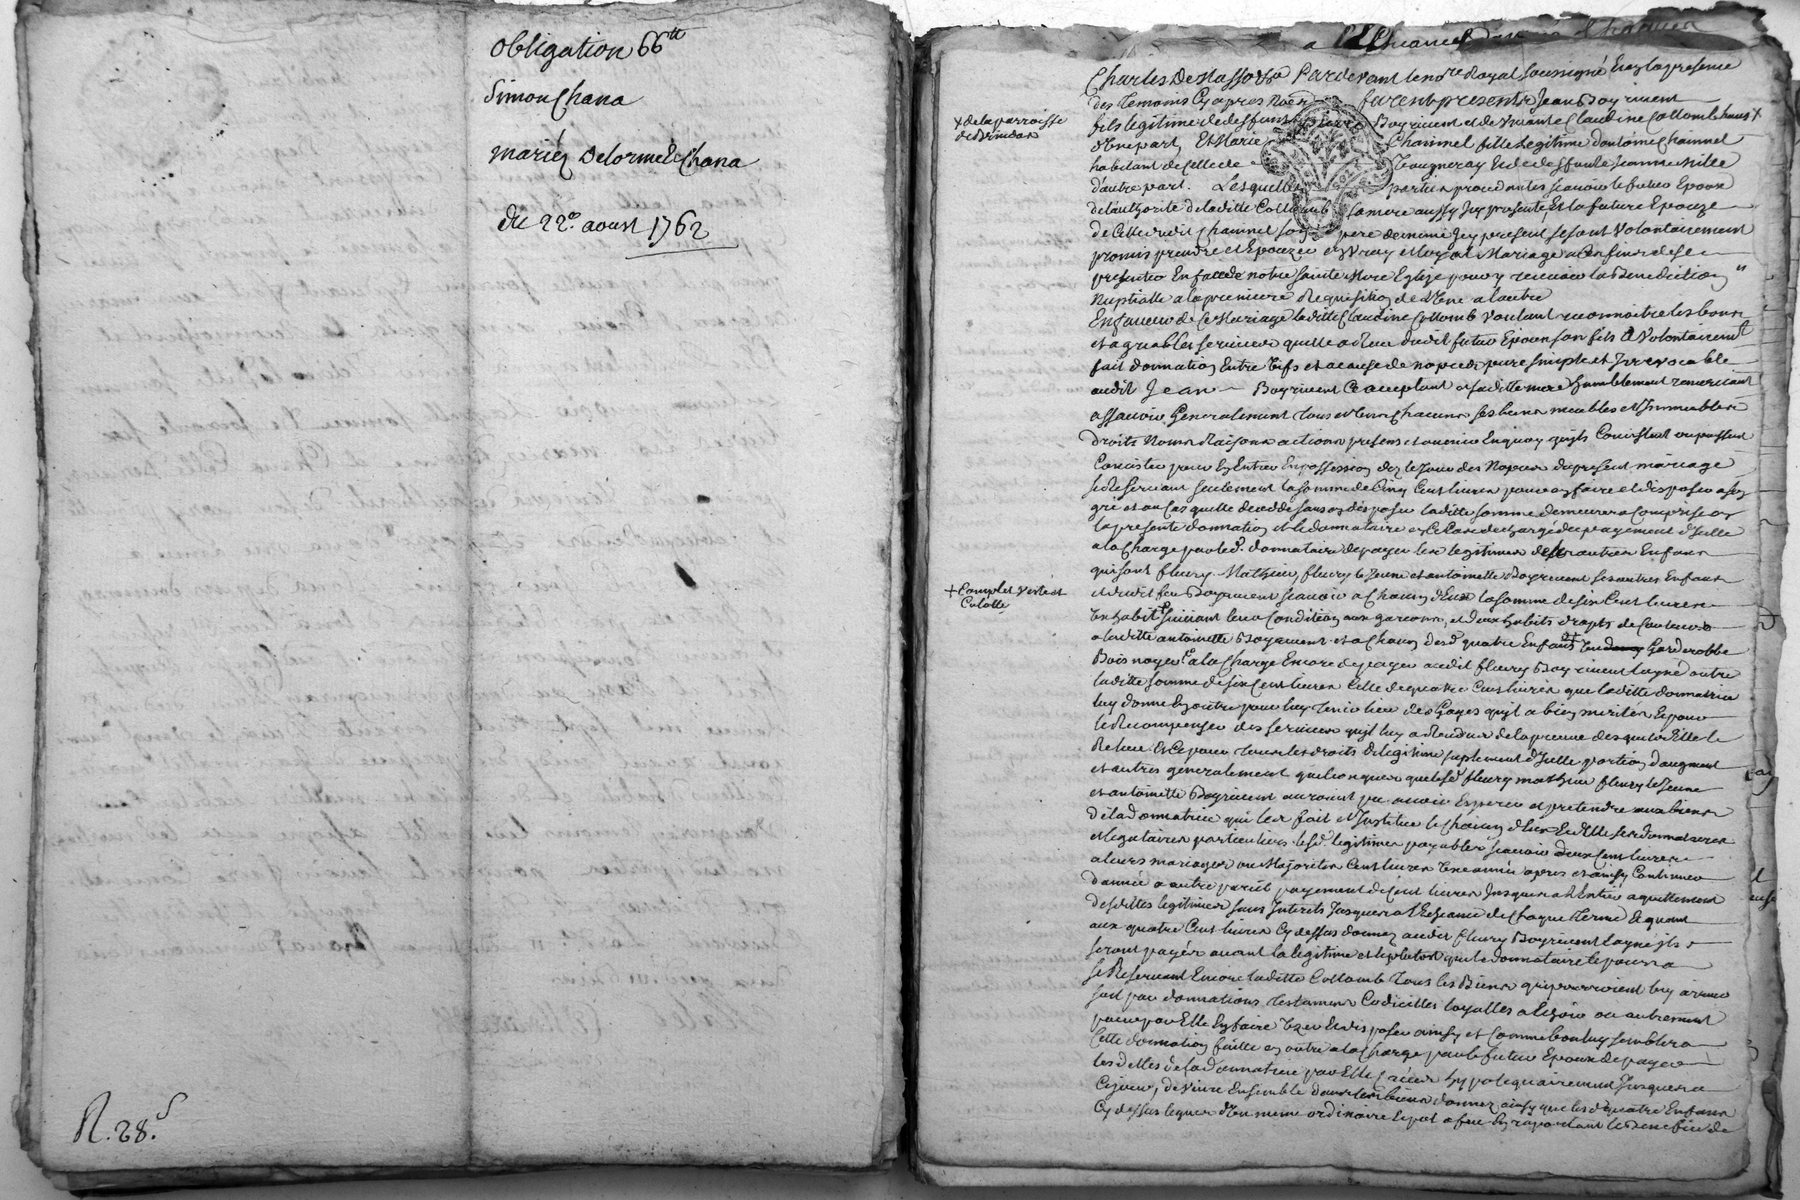 obligation 66ᵗᵗ
Simon Chana
mariés Delorme & Chana
du 22ᵉ aoust 1762
R. 28.ˢ
Pardevant le noʳᵉ Royal soussigné Et en la presence
des temoins Cy apres Nommés furent presents Jean Boyriuent
+ de la parroisse
fils legitime de deffunt Boyriuent et de vivante Claudine Collomb
d'une part, Et Marie Chammel fille legitime d'antoine Chammel
habitant de Celle de et de deffunte Jeanne
d'autre part. Lesquelles parties procedantes scauoir le futur Epoux
de l'authorité de laditte Collomb sa mere aussy Icy presente, Et la future Epouze
de Celle dudit Chammel son pere de meme Icy present se sont Volontairement
promis prendre et Epouzer en vray et loyal Mariage a ces fins de se
presenter En face de notre sainte Mere Eglize pour y receuoir la Benediction
Nuptialle a la premiere Requisition de l'une a l'autre
En faueur de ce Mariage laditte Claudine Collomb voulant reconnoitre les bons
et agreables seruices qu'elle a Receu dudit futur Epoux son fils a Volontairemᵗ
fait donnation Entre vifs et a cause de nopces pure simple et Irreuocable
audit Jean Boyriuent acceptant et saditte mere humblement remerciant
assauoir Generalement tous et un chacuns ses biens meubles et Immeubles
droits Noms Raisons actions presens et auenir En quoy qu'ils Consistent ou puissent
Consister pour En Entrer En possession dez le Jour des Nopces du present mariage
se Reseruant seulement la somme de Cinq Cent liures pour en faire et disposer a son
gré et au cas qu'elle decede sans en disposer laditte somme demeurera comprise en
la presente donnation et le donnataire en ce cas dechargé du payement d'Icelle
a la Charge par led. donnataire de payer les legitimes des autres Enfans
qui sont fleury, Mathieu, fleury le Jeune et antoinette Boyriuent ses autres Enfans
+ Complet veste et
Culotte
et dudit feu Boyriuent scauoir a Chacun d'Eux la somme de six Cent liures
un habit + suiuant leur Condition aux garçons, et deux habits draps de Couleurs
a laditte antoinette Boyriuent et a Chacun desd. quatre Enfans Garderobbe
Bois noyer, a la Charge Encore de payer audit fleury Boyriuent layné outre
laditte somme de six Cent liures Celle de quatre Cent liures que laditte donnatrice
luy donne En outre pour luy tenir lieu des Gages qu'il a bien merités Et pour
le Recompenser des seruices qu'il luy a Rendus de la preuue desquels Elle le
Releue Et ce pour tous les droits de legitime suplement d'Icelle portion d'augment
et autres generalement quelconques que lesd. fleury mathieu fleury le Jeune
et antoinette Boyriuent auroient pu auoir Esperer et pretendre aux biens
de la donnatrice qui les fait et Institue le Chacun d'Eux
et legataires particuliers lesd. legitimes payables scauoir deux Cent liures
a leurs mariages ou Majorités Cent liures une année apres et ainsy Continuer
d'année a autre pareil payement de Cent liures Jusques a l'Entier aquittement
desdittes legitimes sans Interets Jusques a l'Echeance de chaque terme Et quant
aux quatre Cent liures Cy dessus donnez audit fleury Boyriuent layné Ils
seront payés auant la legitime et le plutot que le donnataire le pourra
se Reseruant Encore laditte Collomb tous les Biens qui pourroient luy arriuer
soit par donnations testamens Codicilles loyalles ou autrement
pour par Elle En faire User et disposer ainsy et Comme bon luy semblera
Cette donnation faitte en outre a la Charge par le futur Epoux de payer
les dettes de la donnatrice par Elle Créées hypotequairement Jusques a
Ce jour, de viure Ensemble dans les biens donnez ainsy que lesd quatre Enfans
Cy dessus legués d'un meme ordinaire a pot a feu En raportant le Benefice de